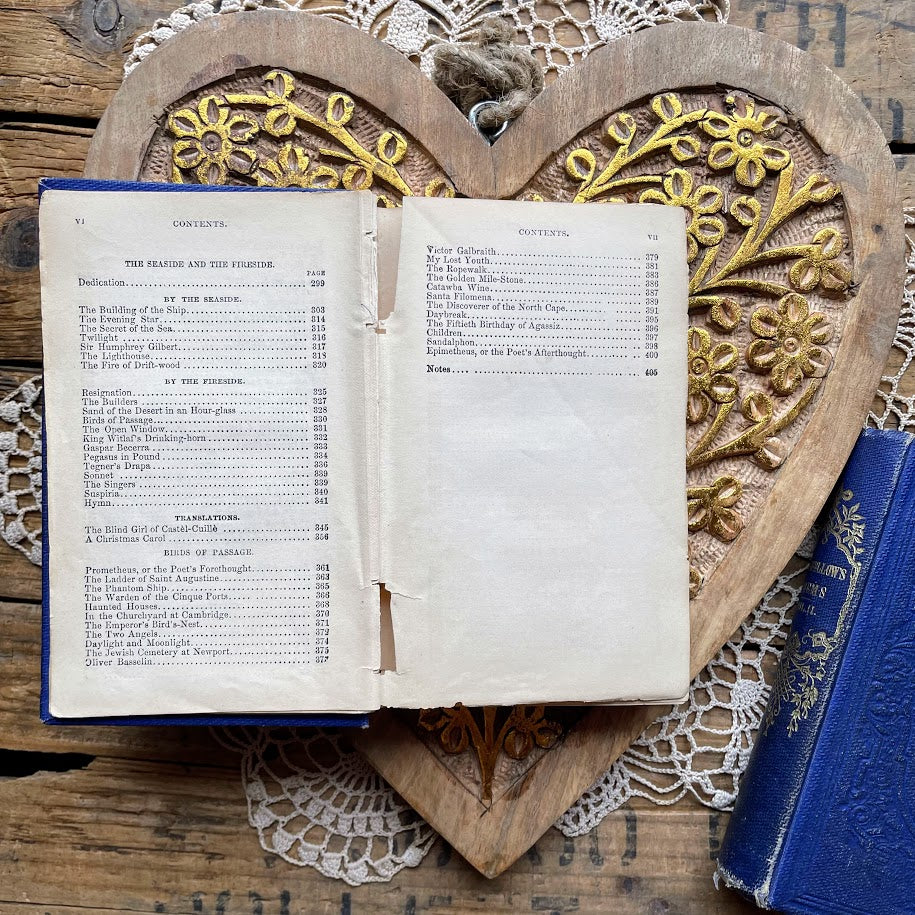 VI CONTENTS.
THE SEASIDE AND THE FIRESIDE.
PAGE
Dedication 299
BY THE SEASIDE.
The Building of the Ship 303
The Evening Star 314
The Secret of the Sea 315
Twilight 316
Sir Humphrey Gilbert 317
The Lighthouse 318
The Fire of Drift-wood 320
BY THE FIRESIDE.
Resignation 325
The Builders 327
Sand of the Desert in an Hour-glass 328
Birds of Passage 330
The Open Window 331
King Witlaf's Drinking-horn 332
Gaspar Becerra 333
Pegasus in Pound 334
Tegner's Drapa 336
Sonnet 339
The Singers 339
Suspiria 340
Hymn 341
TRANSLATIONS.
The Blind Girl of Castèl-Cuillè 345
A Christmas Carol 356
BIRDS OF PASSAGE.
Prometheus, or the Poet's Forethought 361
The Ladder of Saint Augustine 363
The Phantom Ship 365
The Warden of the Cinque Ports 366
Haunted Houses 368
In the Churchyard at Cambridge 370
The Emperor's Bird's-Nest 371
The Two Angels 372
Daylight and Moonlight 374
The Jewish Cemetery at Newport 375
Oliver Basselin 377
CONTENTS. vii
Victor Galbraith 379
My Lost Youth 381
The Ropewalk 383
The Golden Mile-Stone 386
Catawba Wine 387
Santa Filomena 389
The Discoverer of the North Cape 391
Daybreak 395
The Fiftieth Birthday of Agassiz 396
Children 397
Sandalphon 398
Epimetheus, or the Poet's Afterthought 400
Notes 405